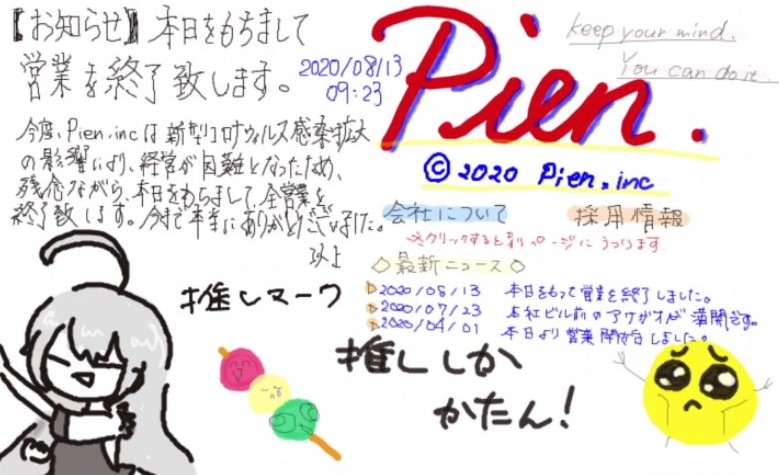 【お知らせ】本日をもちまして
営業を終了致します。
2020/08/13
09:23
今度、Pien.incは新型コロナウィルス感染拡大
の影響により、経営が困難となったため、
残念ながら、本日をもちまして、全営業を
終了致します。今まで本当にありがとうございました。
以上
Pien.
© 2020 Pien.inc
keep your mind.
You can do it.
会社について
採用情報
※クリックすると別ページにうつります
◇最新ニュース◇
2020/08/13 本日をもって営業を終了しました。
2020/07/23 本社ビル前のアサガオが満開です。
2020/04/01 本日より営業開始しました。
推しマーク
推ししか
かたん!